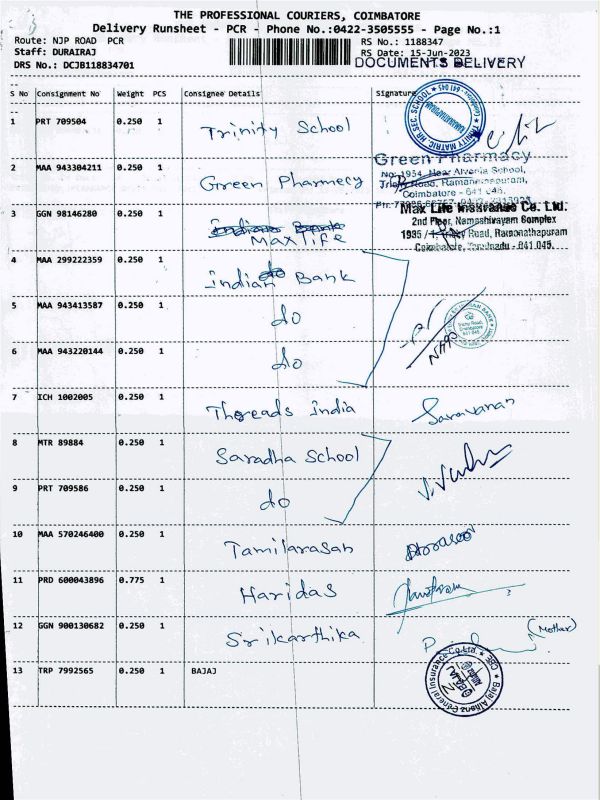 THE PROFESSIONAL COURIERS, COIMBATORE
Delivery Runsheet - PCR - Phone No.:0422-3505555 - Page No.:1
Route: NJP ROAD PCR
RS No.: 1188347
Staff: DURAIRAJ
RS Date: 15-Jun-2023
DRS No.: DCJB118834701
DOCUMENTS DELIVERY
S No Consignment No Weight PCS Consignee Details Signature
1 PRT 709504 0.250 1 Trinity School
TRINITY MATRIC HR SEC. SCHOOL
2 MAA 943304211 0.250 1 Green Pharmecy
Green Pharmacy
No: 1954, Near Alvernia School,
Trinity Road, Ramanathapuram,
Coimbatore - 641 045.
3 GGN 98146280 0.250 1 Indian Bank
Max life
Max Life Insurance Co. Ltd.
2nd Floor, Nampathivayam Complex
1935 / 1, Trinity Road, Ramanathapuram
Coimbatore, Tamilnadu - 641 045.
4 MAA 299222359 0.250 1 Indian Bank
5 MAA 943413587 0.250 1 do
6 MAA 943220144 0.250 1 do
7 ICH 1002005 0.250 1 Threads India Saravanan
8 MTR 89884 0.250 1 Saradha School
9 PRT 709586 0.250 1 do
10 MAA 570246400 0.250 1 Tamilarasan
11 PRD 600043896 0.775 1 Haridas
12 GGN 900130682 0.250 1 Srikarthika (Mother)
13 TRP 7992565 0.250 1 BAJAJ
Bajaj Allianz General Insurance Co Ltd. CBE